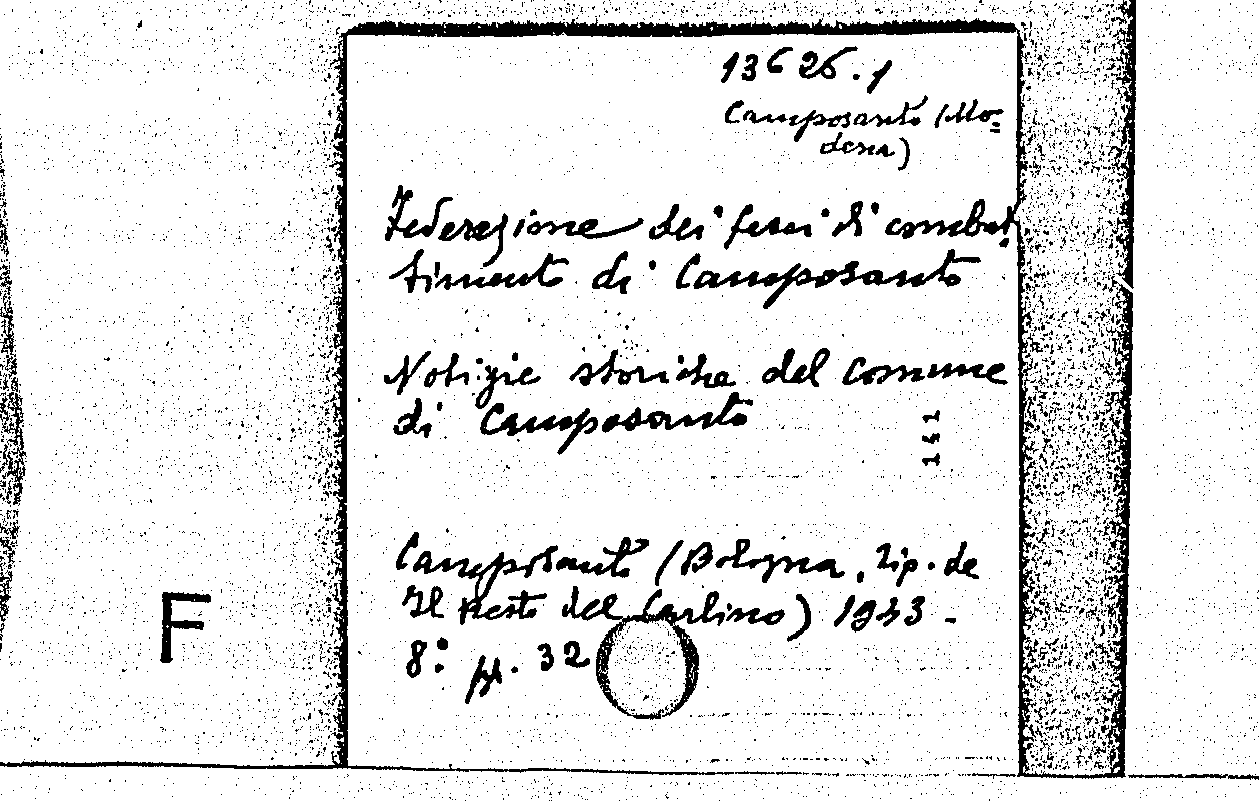 13626.1
Camposanto (Mo=
dena)
Federazione dei fasci di combat
timento di Camposanto
Notizie storiche del Comune
di Camposanto
141
Camposanto (Bologna, Tip. de
Il Resto del Carlino) 1933 -
8° pp. 32
F